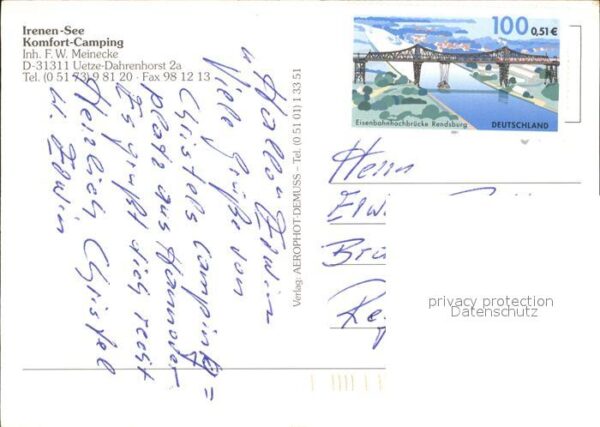 Irenen-See
Komfort-Camping
Inh. F. W. Meinecke
D-31311 Uetze-Dahrenhorst 2a
Tel. (0 51 73) 9 81 20 · Fax 98 12 13
Hallo Edwin
Viele Grüße von
Christels Camping=
platz aus Hannover
Es grüßt dich recht
Herzlich Christel
u. Edwin
Verlag: AEROPHOT-DEMUSS – Tel. (0 51 01) 1 33 51
100 0,51 €
Eisenbahnhochbrücke Rendsburg
DEUTSCHLAND
Herrn
privacy protection
Datenschutz